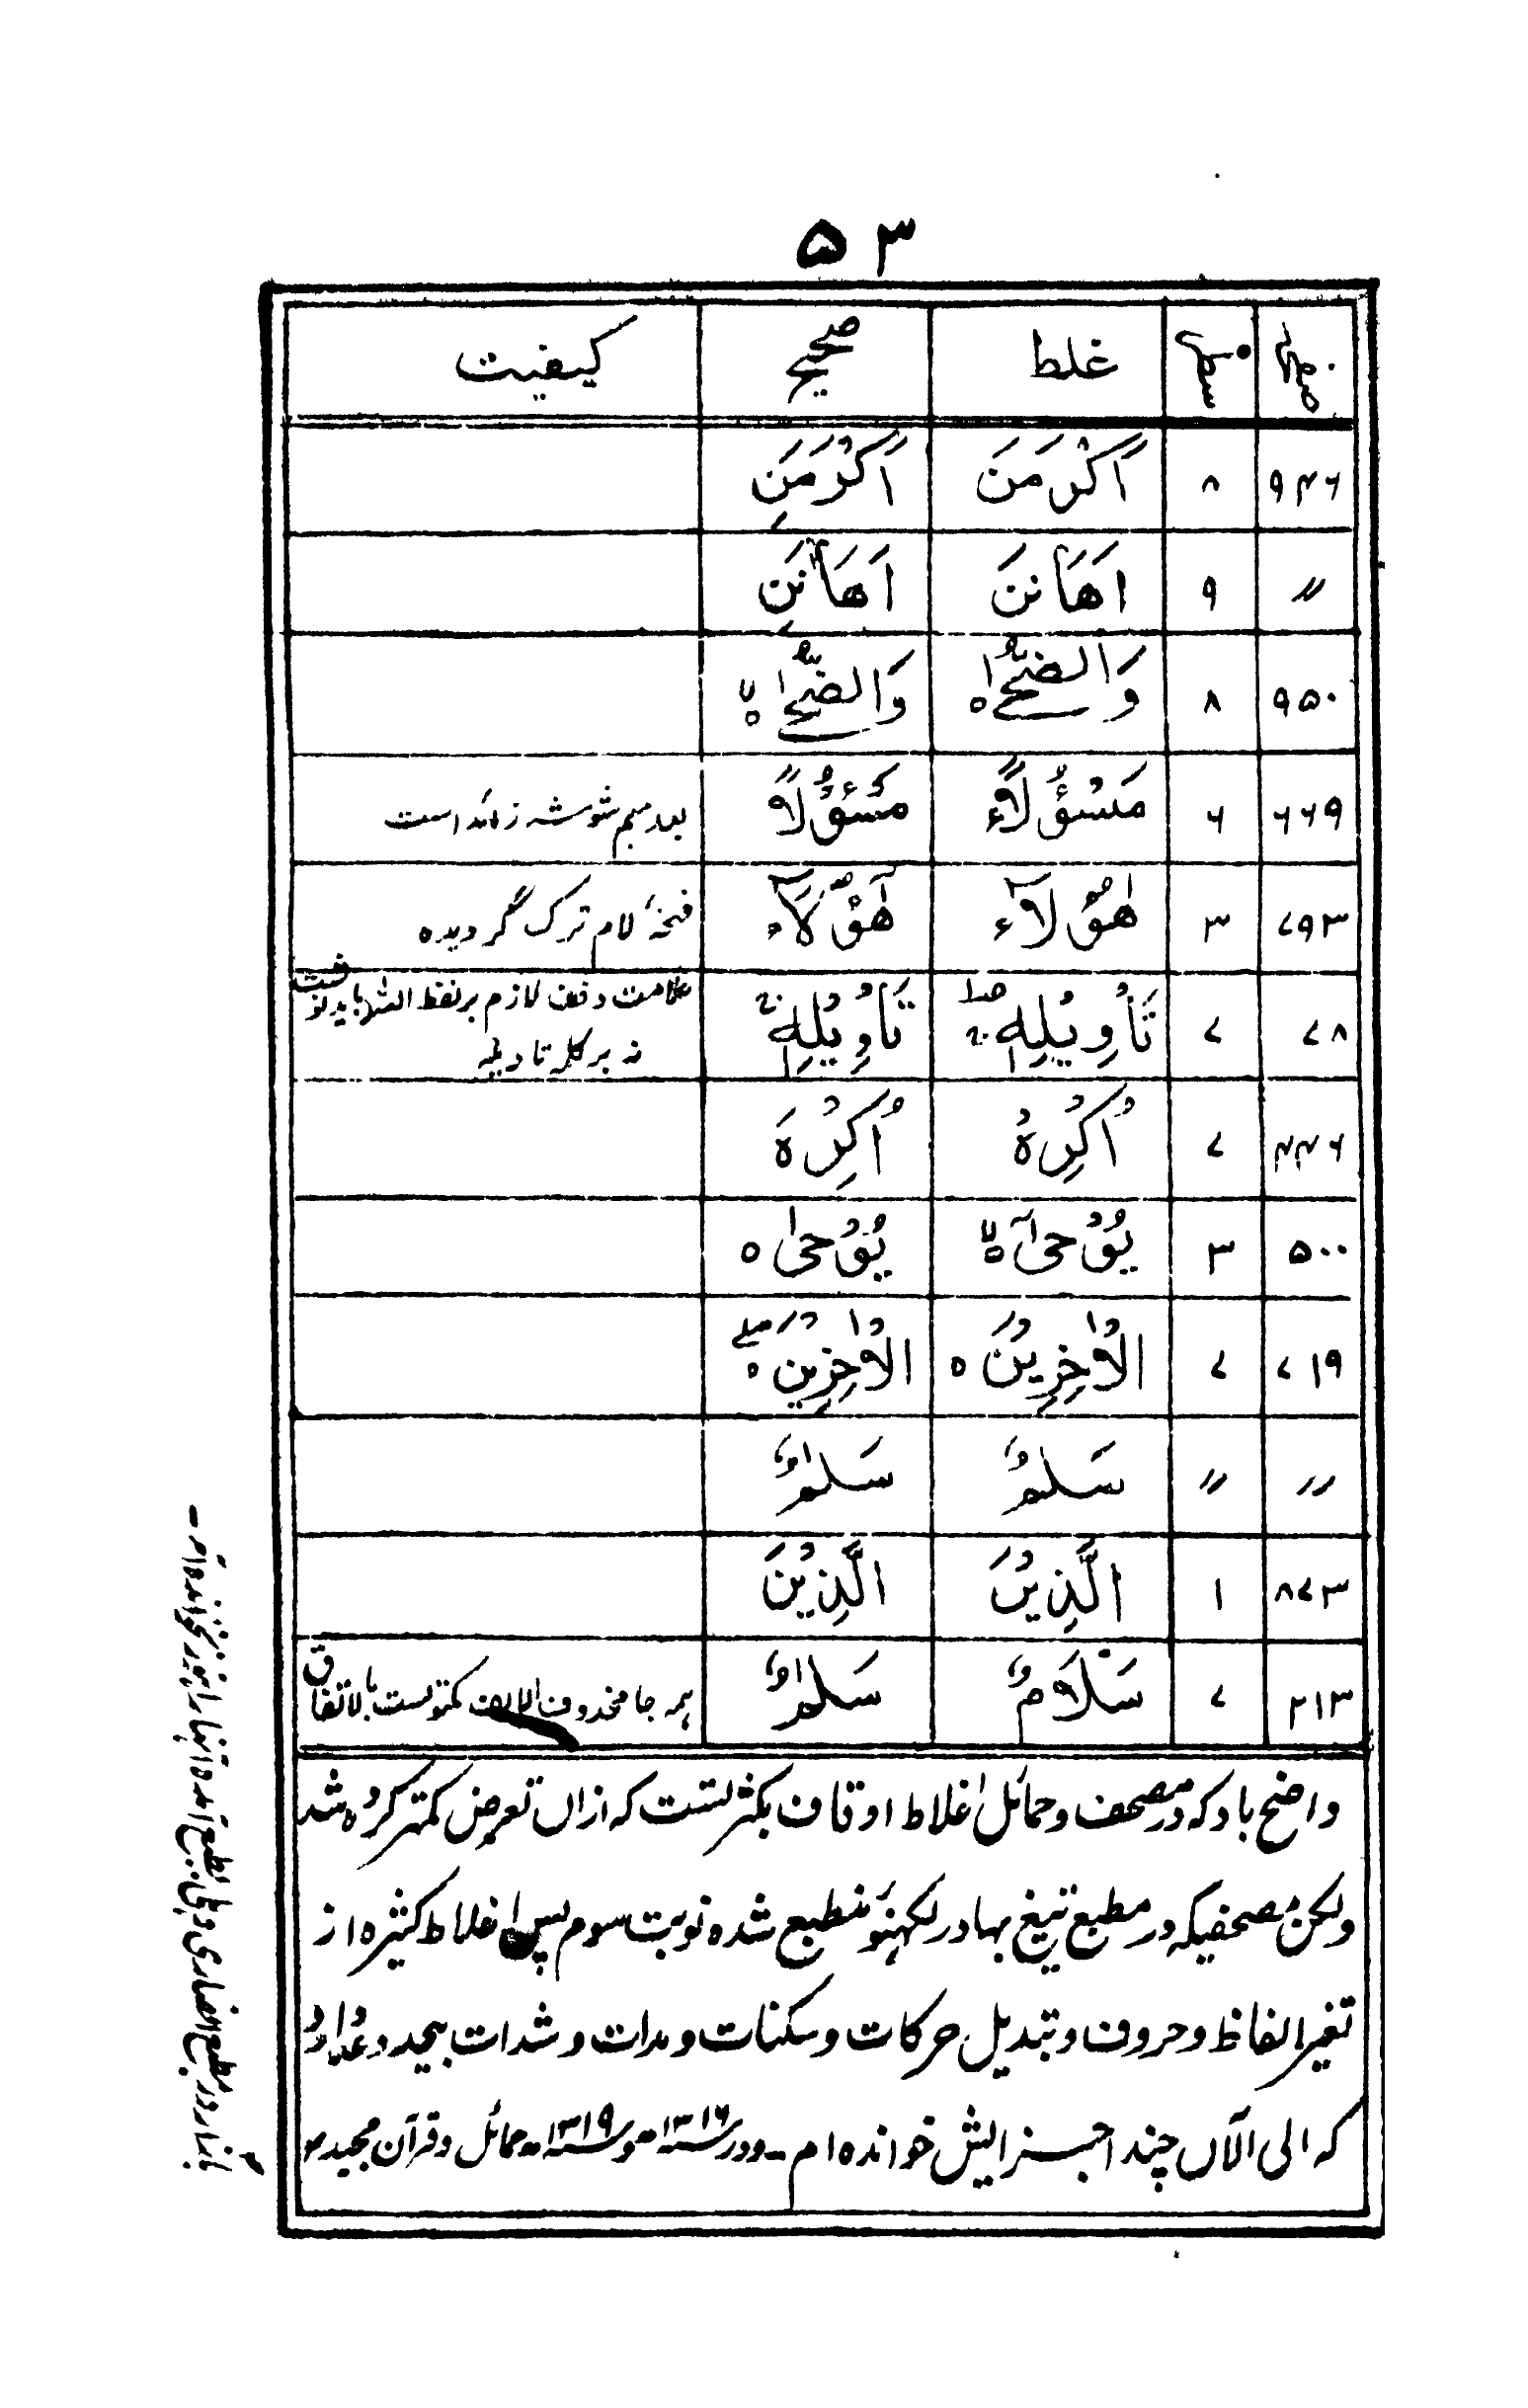 ۵۳
صفحہ سطر غلط صحیح کیفیت
۹۴۶ ۸ اَكْرَمَنَ اَكْرَمَنِ
〃 ۹ اَهَانَنَ اَهَانَنِ
۹۵۰ ۸ وَالضُّحٰى وَالضُّحٰى
۶۶۹ ۶ مَسْئُوْلًا مَسْئُوْلًا بعد میم شوشہ زائد است
۷۹۳ ۳ هٰؤُلَآءِ هٰٓؤُلَآءِ فتحۂ لام ترک گردیدہ
۷۸ ۷ تَأْوِيْلِهٖ تَأْوِيْلِهٖ علامت وقف لازم بر لفظ اللہ باید نوشت
نہ بر کلمہ تاویلہ
۴۴۶ ۷ اُكْرِهُ اُكْرِهَ
۵۰۰ ۳ يُوْحٰى يُوْحٰى ہ
۷۱۹ ۷ الْاٰخِرِيْنَ ہ الْاٰخِرِيْنَ ہ
〃 〃 سَلمٌ سَلٰمٌ
۸۷۳ ۱ الَّذِيْنَ الَّذِيْنَ
۲۱۳ ۷ سَلَامٌ سَلٰمٌ ہمہ جا محذوف الالف مکتوبست بالاتفاق
واضح باد کہ در مصحف و حمائل اغلاط اوقاف بکثرتست کہ ازاں تعرض کمتر کردہ شد
ولکن مصحفیکہ در مطبع تیغ بہادر لکہنؤ منطبع شدہ نوبت سوم پس اغلاط کثیرہ از
تغیر الفاظ و حروف و تبدیل حرکات و سکنات و مدات و شدات بیحد و عد دارد
کہ الی الآن چند اجزایش خواندہ ام۔ و در سنہ ۱۳۱۶ و سنہ ۱۳۱۹ حمائل و قرآن مجید
در مطبع انصاری دہلی